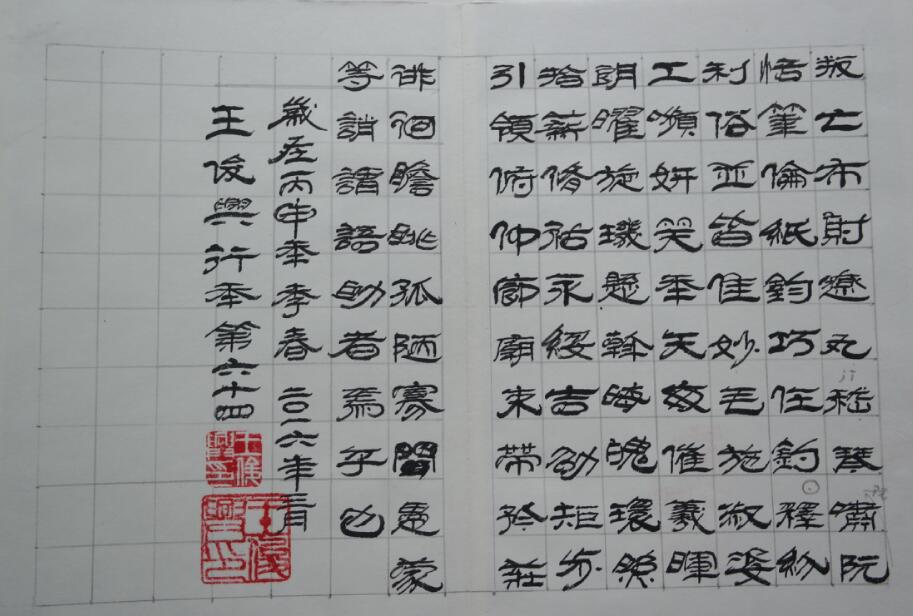 叛亡布射遼丸嵇琴嘯阮
恬筆倫紙鈞巧任釣釋紛
利俗並皆佳妙毛施淑姿
工嚬妍笑年矢每催羲暉
朗曜旋璣懸斡晦魄環
指薪脩祐永綏吉劭矩步
引領俯仰廊廟束帶矜莊
徘徊瞻眺孤陋寡聞愚蒙
等誚謂語助者焉乎也
歲在丙申年季春 二〇一六年三月
王俊興行年第六十四
王俊興印
王俊興印